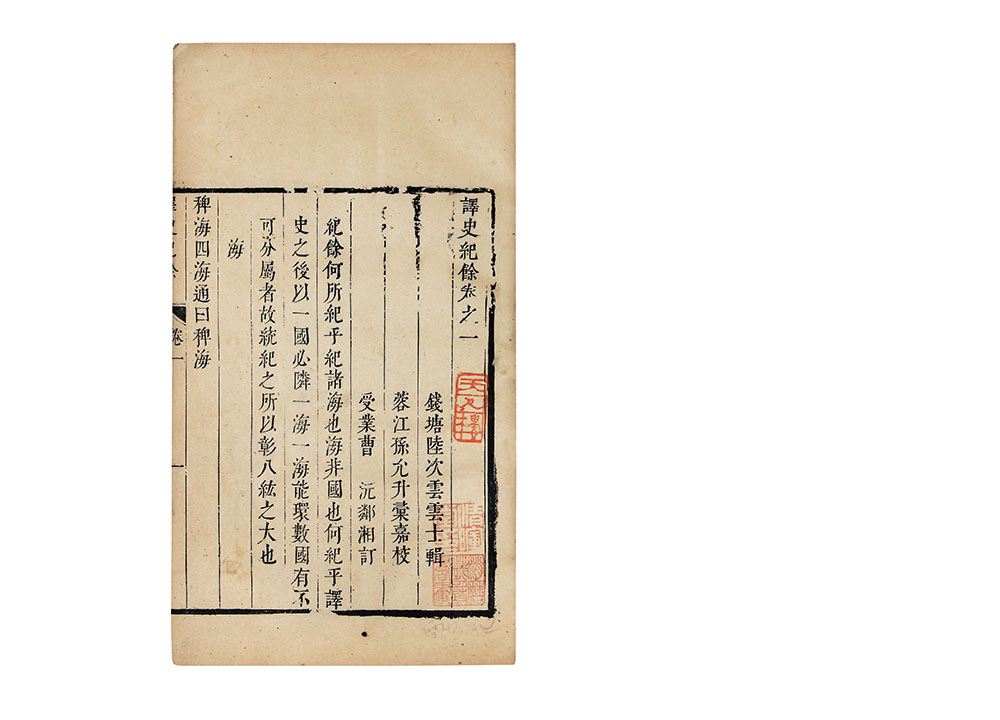 譯史紀餘卷之一
錢塘陸次雲雲士輯
蓉江孫允升彙嘉校
受業曹 沅鄰湘訂
紀餘何所紀乎紀諸海也海非國也何紀乎譯
史之後以一國必隣一海一海能環數國有不
可分屬者故統紀之所以彰八紘之大也
海
稗海四海通曰稗海
卷一
一